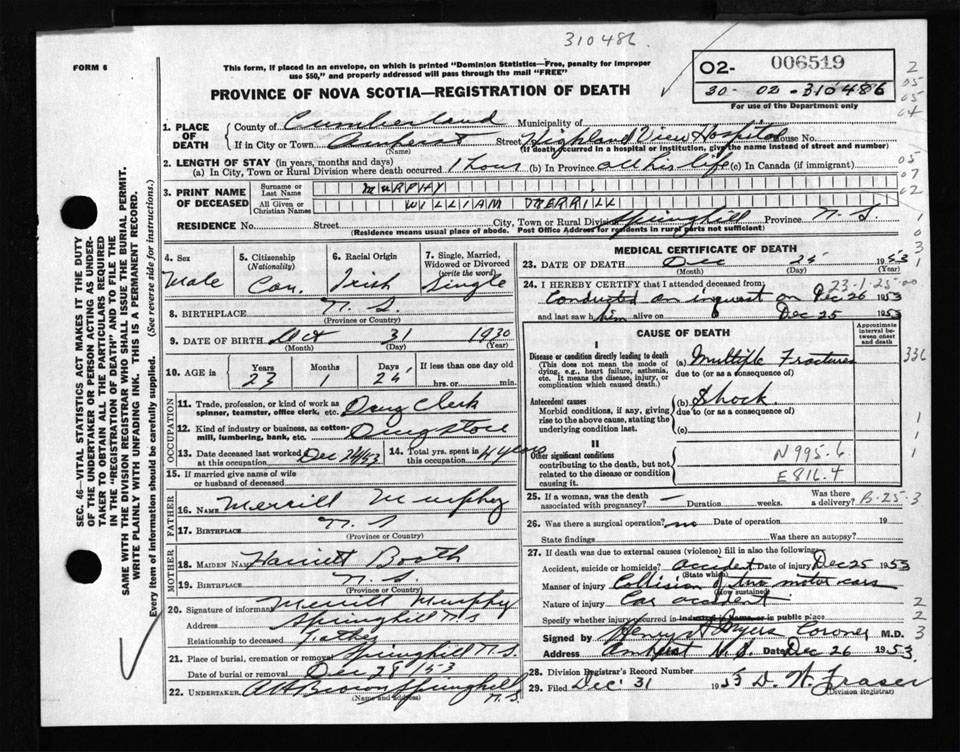 310486
FORM 6
This form, if placed in an envelope, on which is printed "Dominion Statistics—Free, penalty for improper
use $50," and properly addressed will pass through the mail "FREE"
PROVINCE OF NOVA SCOTIA—REGISTRATION OF DEATH
02- 006519
30- 02-310486
For use of the Department only
1. PLACE OF DEATH
County of Cumberland Municipality of
If in City or Town Amherst Street Highland View Hospital House No.
(Name) (If death occurred in a hospital or institution, give the name instead of street and number)
2. LENGTH OF STAY (in years, months and days)
(a) In City, Town or Rural Division where death occurred 1 hour (b) In Province all his life (c) In Canada (if immigrant)
3. PRINT NAME OF DECEASED
Surname or Last Name MURPHY
All Given or Christian Names WILLIAM MERRILL
RESIDENCE No. Street City, Town or Rural Division Springhill Province N.S.
(Residence means usual place of abode. Post Office Address for residents in rural parts not sufficient)
4. Sex
Male
5. Citizenship (Nationality)
Can.
6. Racial Origin
Irish
7. Single, Married, Widowed or Divorced (write the word)
Single
8. BIRTHPLACE N.S.
(Province or Country)
9. DATE OF BIRTH Oct 31 1930
(Month) (Day) (Year)
10. AGE in Years Months Days If less than one day old
23 1 24 hrs. or min.
OCCUPATION
11. Trade, profession, or kind of work as
spinner, teamster, office clerk, etc. Drug Clerk
12. Kind of industry or business, as cotton-
mill, lumbering, bank, etc. Drugstore
13. Date deceased last worked at this occupation Dec 24/53
14. Total yrs. spent in this occupation 4 years
15. If married give name of wife
or husband of deceased
FATHER
16. NAME Merrill Murphy
17. BIRTHPLACE N.S
(Province or Country)
MOTHER
18. MAIDEN NAME Harriett Booth
19. BIRTHPLACE N.S.
(Province or Country)
20. Signature of informant Merrill Murphy
Address Springhill N.S
Relationship to deceased Father
21. Place of burial, cremation or removal Springhill N.S.
Date of burial or removal Dec 28/53
22. UNDERTAKER Brown Springhill
(Name and address) N.S.
MEDICAL CERTIFICATE OF DEATH
23. DATE OF DEATH Dec 25 1953
(Month) (Day) (Year)
23-1-25-00
24. I HEREBY CERTIFY that I attended deceased from:
Conducted an inquest on Dec 26 1953
and last saw him alive on Dec 25 1953
CAUSE OF DEATH
Approximate interval between onset and death
I
Disease or condition directly leading to death
(This does not mean the mode of
dying, e.g., heart failure, asthenia,
etc. It means the disease, injury, or
complication which caused death.)
(a) Multiple Fractures
due to (or as a consequence of)
336
Antecedent causes
Morbid conditions, if any, giving
rise to the above cause, stating the
underlying condition last.
(b) Shock.
due to (or as a consequence of)
(c)
II
Other significant conditions
contributing to the death, but not
related to the disease or
condition causing it.
N995.6
E816.4
25. If a woman, was the death
associated with pregnancy? — Duration weeks. Was there a delivery? B-25-3
26. Was there a surgical operation? no Date of operation 19
State findings Was there an autopsy?
27. If death was due to external causes (violence) fill in also the following:
Accident, suicide or homicide? accident Date of injury Dec 25 1953
(State which)
Manner of injury Collision two motor cars
(How sustained)
Nature of injury Car accident
Specify whether injury occurred in Industry, Home, or in public place
Signed by Henry A Myers Coroner M.D.
Address Amherst N.S. Date Dec 26 1953
28. Division Registrar's Record Number
29. Filed Dec. 31 1953 D. W. Fraser
(Division Registrar)
SEC. 46—VITAL STATISTICS ACT MAKES IT THE DUTY
OF THE UNDERTAKER OR PERSON ACTING AS UNDER-
TAKER TO OBTAIN ALL THE PARTICULARS REQUIRED
IN THE "REGISTRATION OF DEATH" AND TO FILE THE
SAME WITH THE DIVISION REGISTRAR WHO SHALL ISSUE THE BURIAL PERMIT.
WRITE PLAINLY WITH UNFADING INK. THIS IS A PERMANENT RECORD.
Every item of information should be carefully supplied. (See reverse side for instructions.)